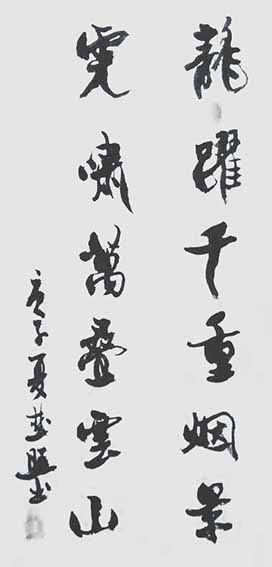 龍躍千重烟景
虎嘯萬叠雲山
庚子夏